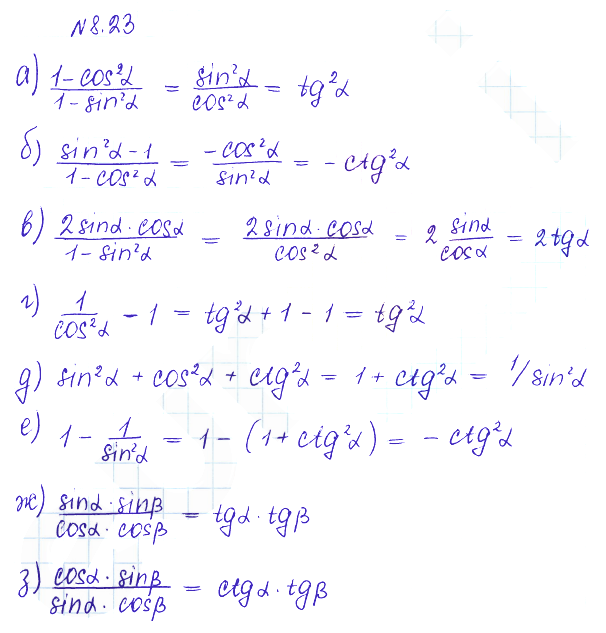 N 8.23
а) (1-cos²α)/(1-sin²α) = sin²α/cos²α = tg²α
б) (sin²α-1)/(1-cos²α) = -cos²α/sin²α = -ctg²α
в) (2sinα·cosα)/(1-sin²α) = (2sinα·cosα)/cos²α = 2 sinα/cosα = 2tgα
г) 1/cos²α - 1 = tg²α + 1 - 1 = tg²α
д) sin²α + cos²α + ctg²α = 1 + ctg²α = 1/sin²α
е) 1 - 1/sin²α = 1 - (1 + ctg²α) = -ctg²α
ж) (sinα·sinβ)/(cosα·cosβ) = tgα·tgβ
з) (cosα·sinβ)/(sinα·cosβ) = ctgα·tgβ